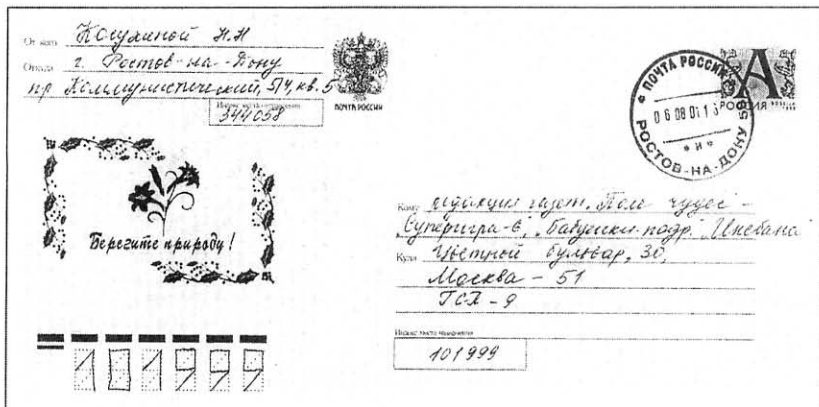 От кого Косухиной Н.Н
Откуда г. Ростов-на-Дону
пр Коммунистический, 5/4, кв. 5
Индекс места отправления
344058
ПОЧТА РОССИИ
Берегите природу!
ПОЧТА РОССИИ
06 08 01 1
РОСТОВ-НА-ДОНУ 58
и
А
РОССИЯ
Кому редакция газет, Поле чудес -
Суперигра-6", Бабушкин
Куда Цветной бульвар, 30,
Москва - 51
ГСП - 9
Индекс места назначения
101999
101999